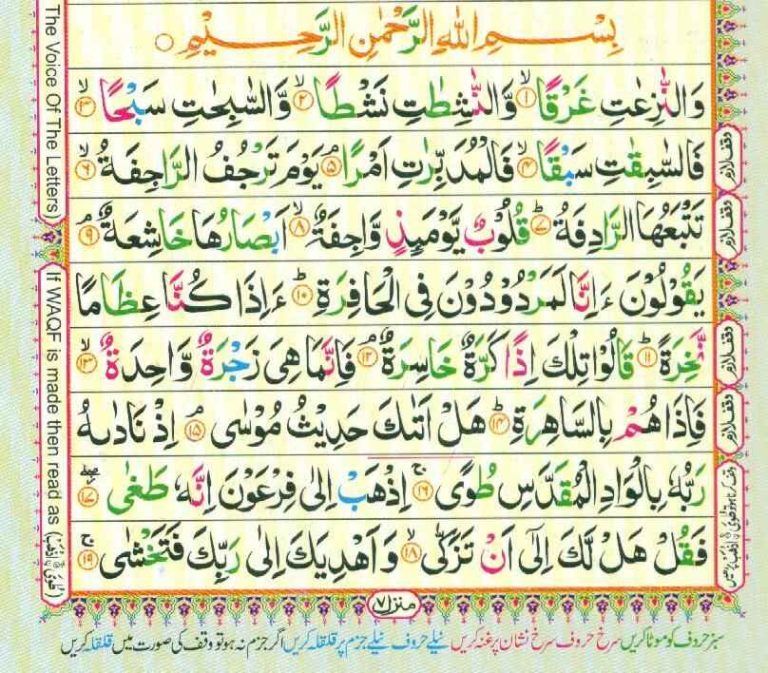 بِسْمِ اللهِ الرَّحْمٰنِ الرَّحِيْمِ ○
وَالنّٰزِعٰتِ غَرْقًا ۙ﴿۱﴾ وَّالنّٰشِطٰتِ نَشْطًا ۙ﴿۲﴾ وَّالسّٰبِحٰتِ سَبْحًا ۙ﴿۳﴾
فَالسّٰبِقٰتِ سَبْقًا ۙ﴿۴﴾ فَالْمُدَبِّرٰتِ اَمْرًا ۘ﴿۵﴾ يَوْمَ تَرْجُفُ الرَّاجِفَةُ ۙ﴿۶﴾
تَتْبَعُهَا الرَّادِفَةُ ؕ﴿۷﴾ قُلُوْبٌ يَّوْمَىِٕذٍ وَّاجِفَةٌ ۙ﴿۸﴾ اَبْصَارُهَا خَاشِعَةٌ ۘ﴿۹﴾
يَقُوْلُوْنَ ءَاِنَّا لَمَرْدُوْدُوْنَ فِى الْحَافِرَةِ ؕ﴿۱۰﴾ ءَاِذَا كُنَّا عِظَامًا
نَّخِرَةً ؕ﴿۱۱﴾ قَالُوْا تِلْكَ اِذًا كَرَّةٌ خَاسِرَةٌ ۘ﴿۱۲﴾ فَاِنَّمَا هِىَ زَجْرَةٌ وَّاحِدَةٌ ۙ﴿۱۳﴾
فَاِذَا هُمْ بِالسَّاهِرَةِ ؕ﴿۱۴﴾ هَلْ اَتٰىكَ حَدِيْثُ مُوْسٰى ۘ﴿۱۵﴾ اِذْ نَادٰىهُ
رَبُّهٗ بِالْوَادِ الْمُقَدَّسِ طُوًى ۚ﴿۱۶﴾ اِذْهَبْ اِلٰى فِرْعَوْنَ اِنَّهٗ طَغٰى ﴿۱۷﴾
فَقُلْ هَلْ لَّكَ اِلٰٓى اَنْ تَزَكّٰى ۙ﴿۱۸﴾ وَاَهْدِيَكَ اِلٰى رَبِّكَ فَتَخْشٰى ۚ﴿۱۹﴾
منزل ۷
سبز حروف کو موٹا کریں سرخ حروف سرخ نشان پر غنہ کریں نیلے حروف نیلے جزم پر قلقلہ کریں اگر جزم نہ ہو تو وقف کی صورت میں قلقلہ کریں
وقف لازم
وقف لازم
وقف لازم
وقف لازم
The Voice Of The Letters)
If WAQF is made then read as